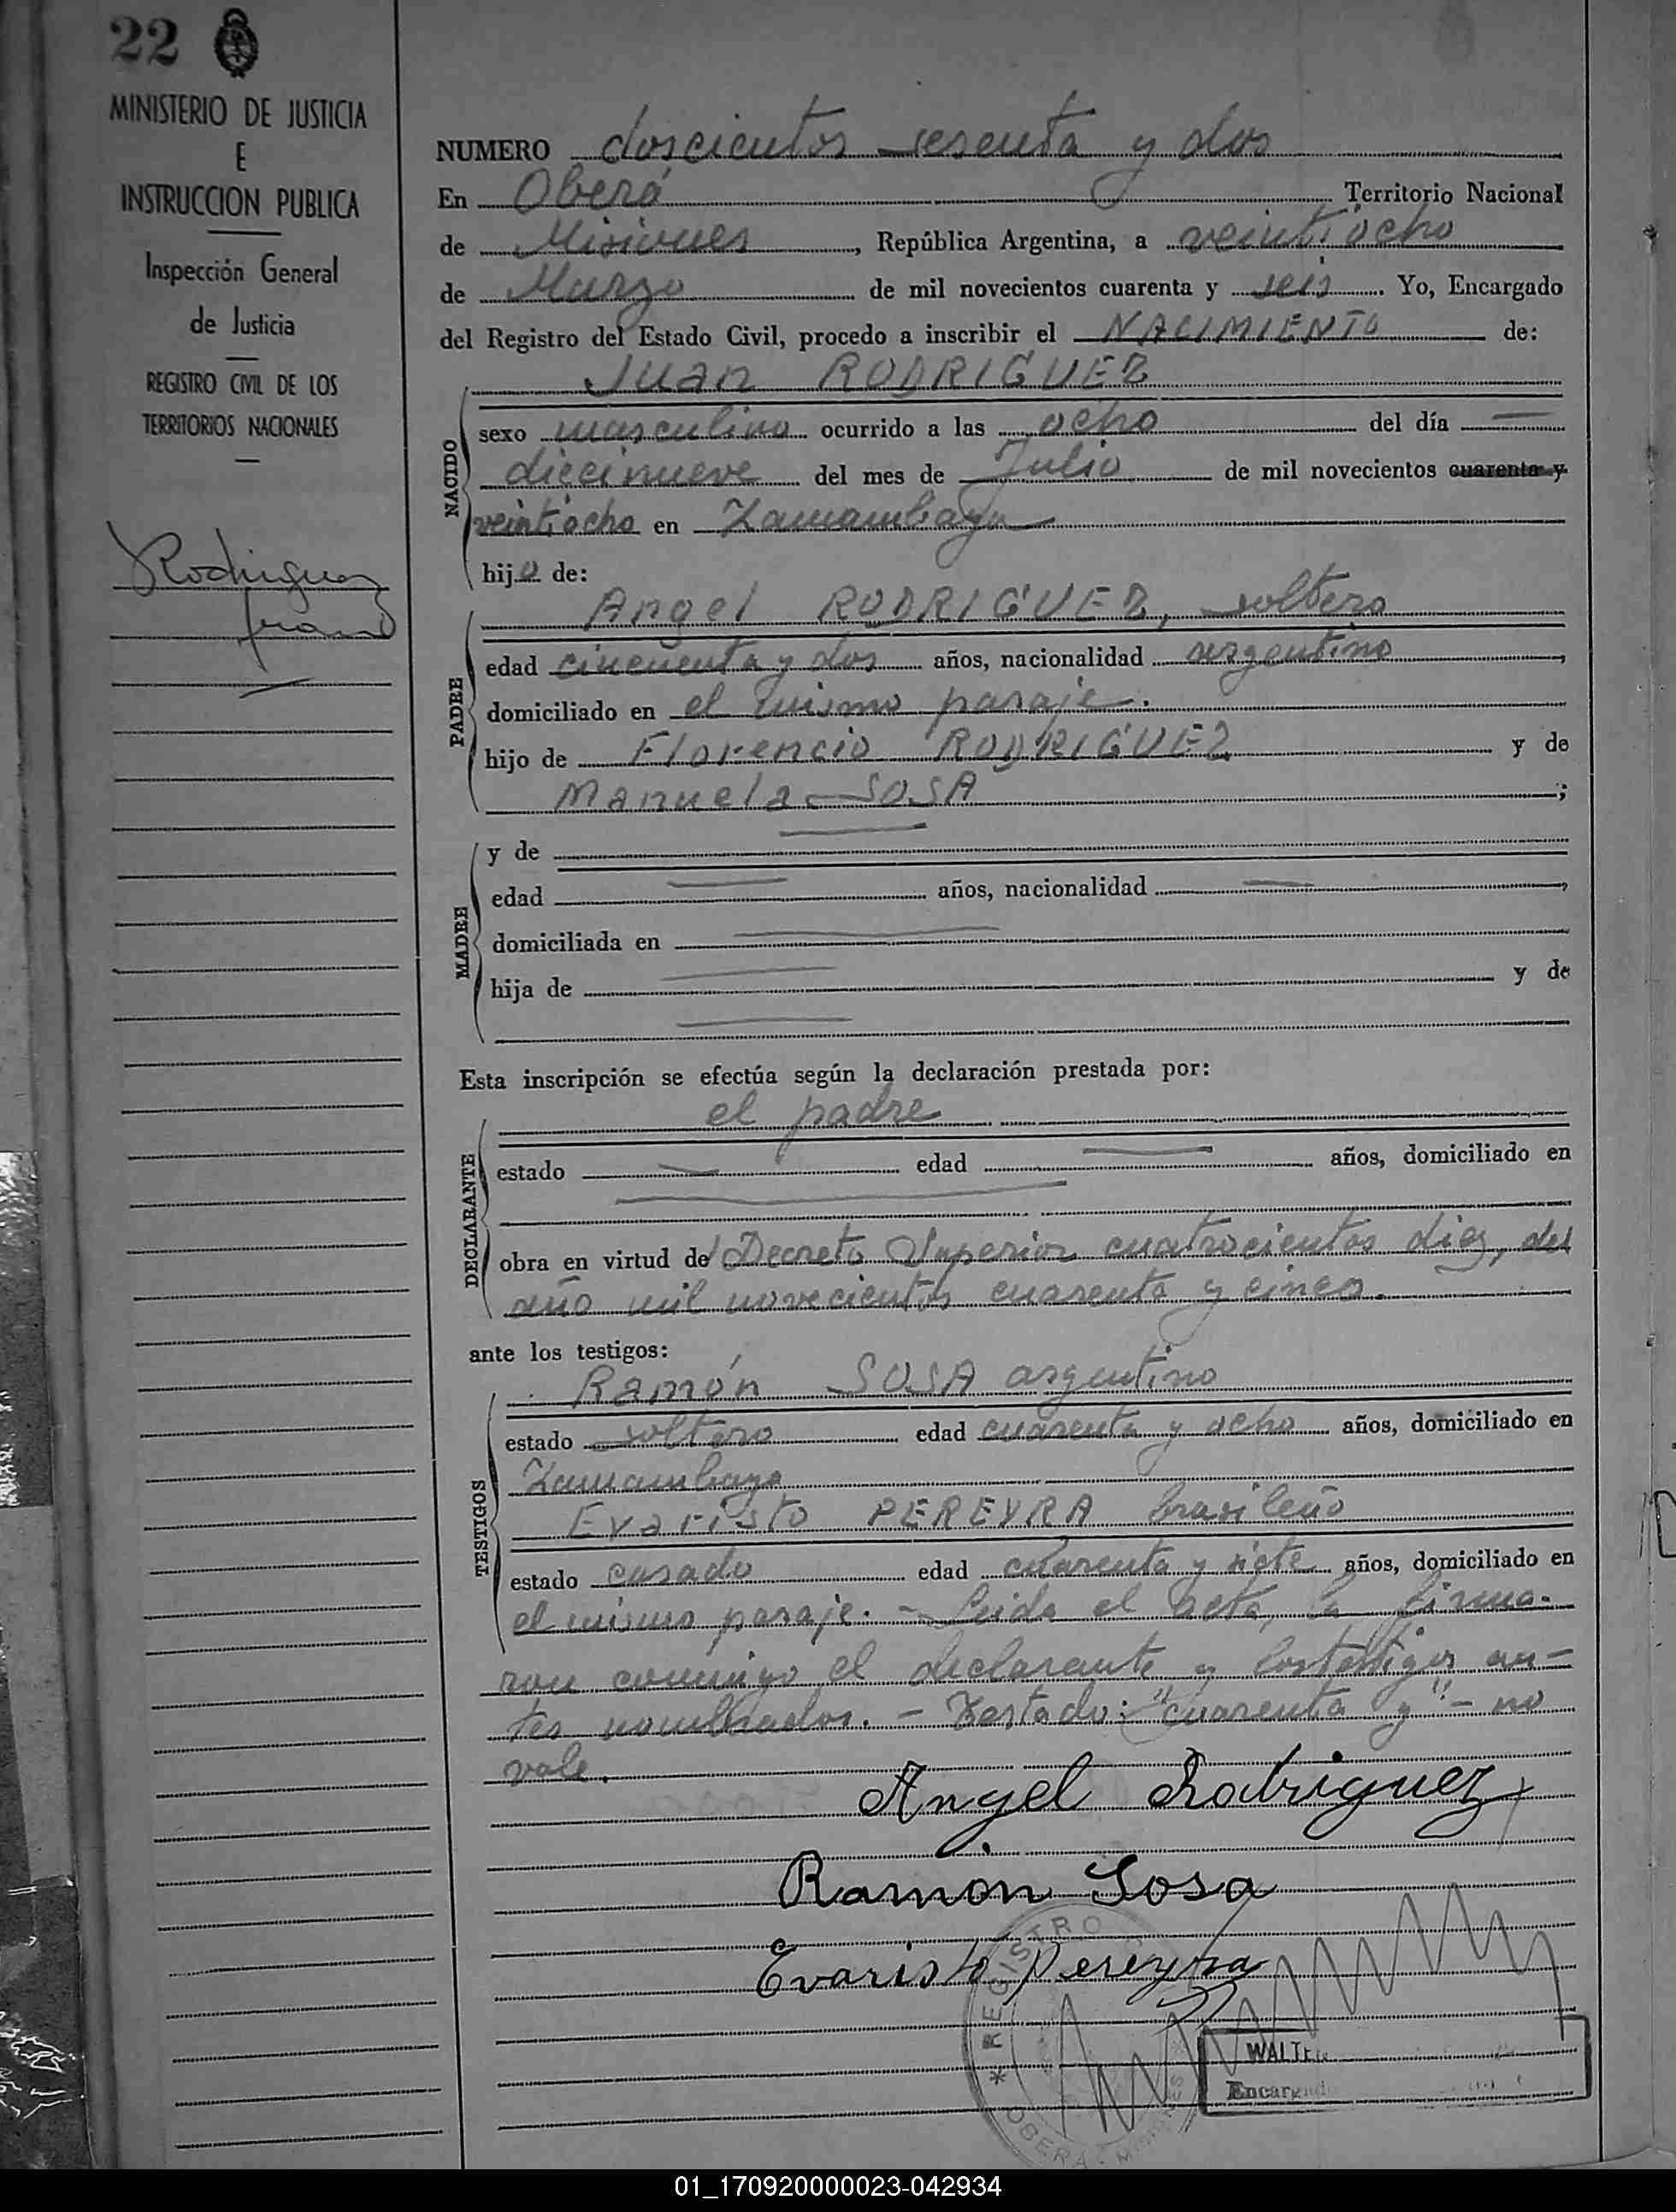 22
MINISTERIO DE JUSTICIA
E
INSTRUCCION PUBLICA
Inspección General
de Justicia
REGISTRO CIVIL DE LOS
TERRITORIOS NACIONALES
Rodriguez
Juan
NUMERO doscientos sesenta y dos
En Oberá Territorio Nacional
de Misiones, República Argentina, a veintiocho
de Marzo de mil novecientos cuarenta y seis. Yo, Encargado
del Registro del Estado Civil, procedo a inscribir el NACIMIENTO de:
Juan RODRIGUEZ
NACIDO
sexo masculino ocurrido a las ocho del día —
diecinueve del mes de Julio de mil novecientos cuarenta y
veintiocho en Zamambaya
hijo de:
PADRE
Angel RODRIGUEZ, soltero
edad cincuenta y dos años, nacionalidad argentino,
domiciliado en el mismo paraje.
hijo de Florencio RODRIGUEZ y de
Manuela SOSA;
MADRE
y de
edad — años, nacionalidad —,
domiciliada en —
hija de — y de
—
Esta inscripción se efectúa según la declaración prestada por:
DECLARANTE
el padre
estado — edad — años, domiciliado en
—
obra en virtud de Decreto Superior cuatrocientos diez, del
año mil novecientos cuarenta y cinco.
ante los testigos:
TESTIGOS
Ramón SOSA argentino
estado soltero edad cuarenta y ocho años, domiciliado en
Zamambaya
Evaristo PEREYRA brasileño
estado casado edad cuarenta y siete años, domiciliado en
el mismo paraje. - Leida el acta, la firma-
ron conmigo el declarante y los testigos an-
tes nombrados. - Testado: "cuarenta y" - no
vale.
Angel Rodriguez
Ramón Sosa
Evaristo Pereyra
REGISTRO
OBERÁ - MISIONES
WALTER
Encargado
01_170920000023-042934